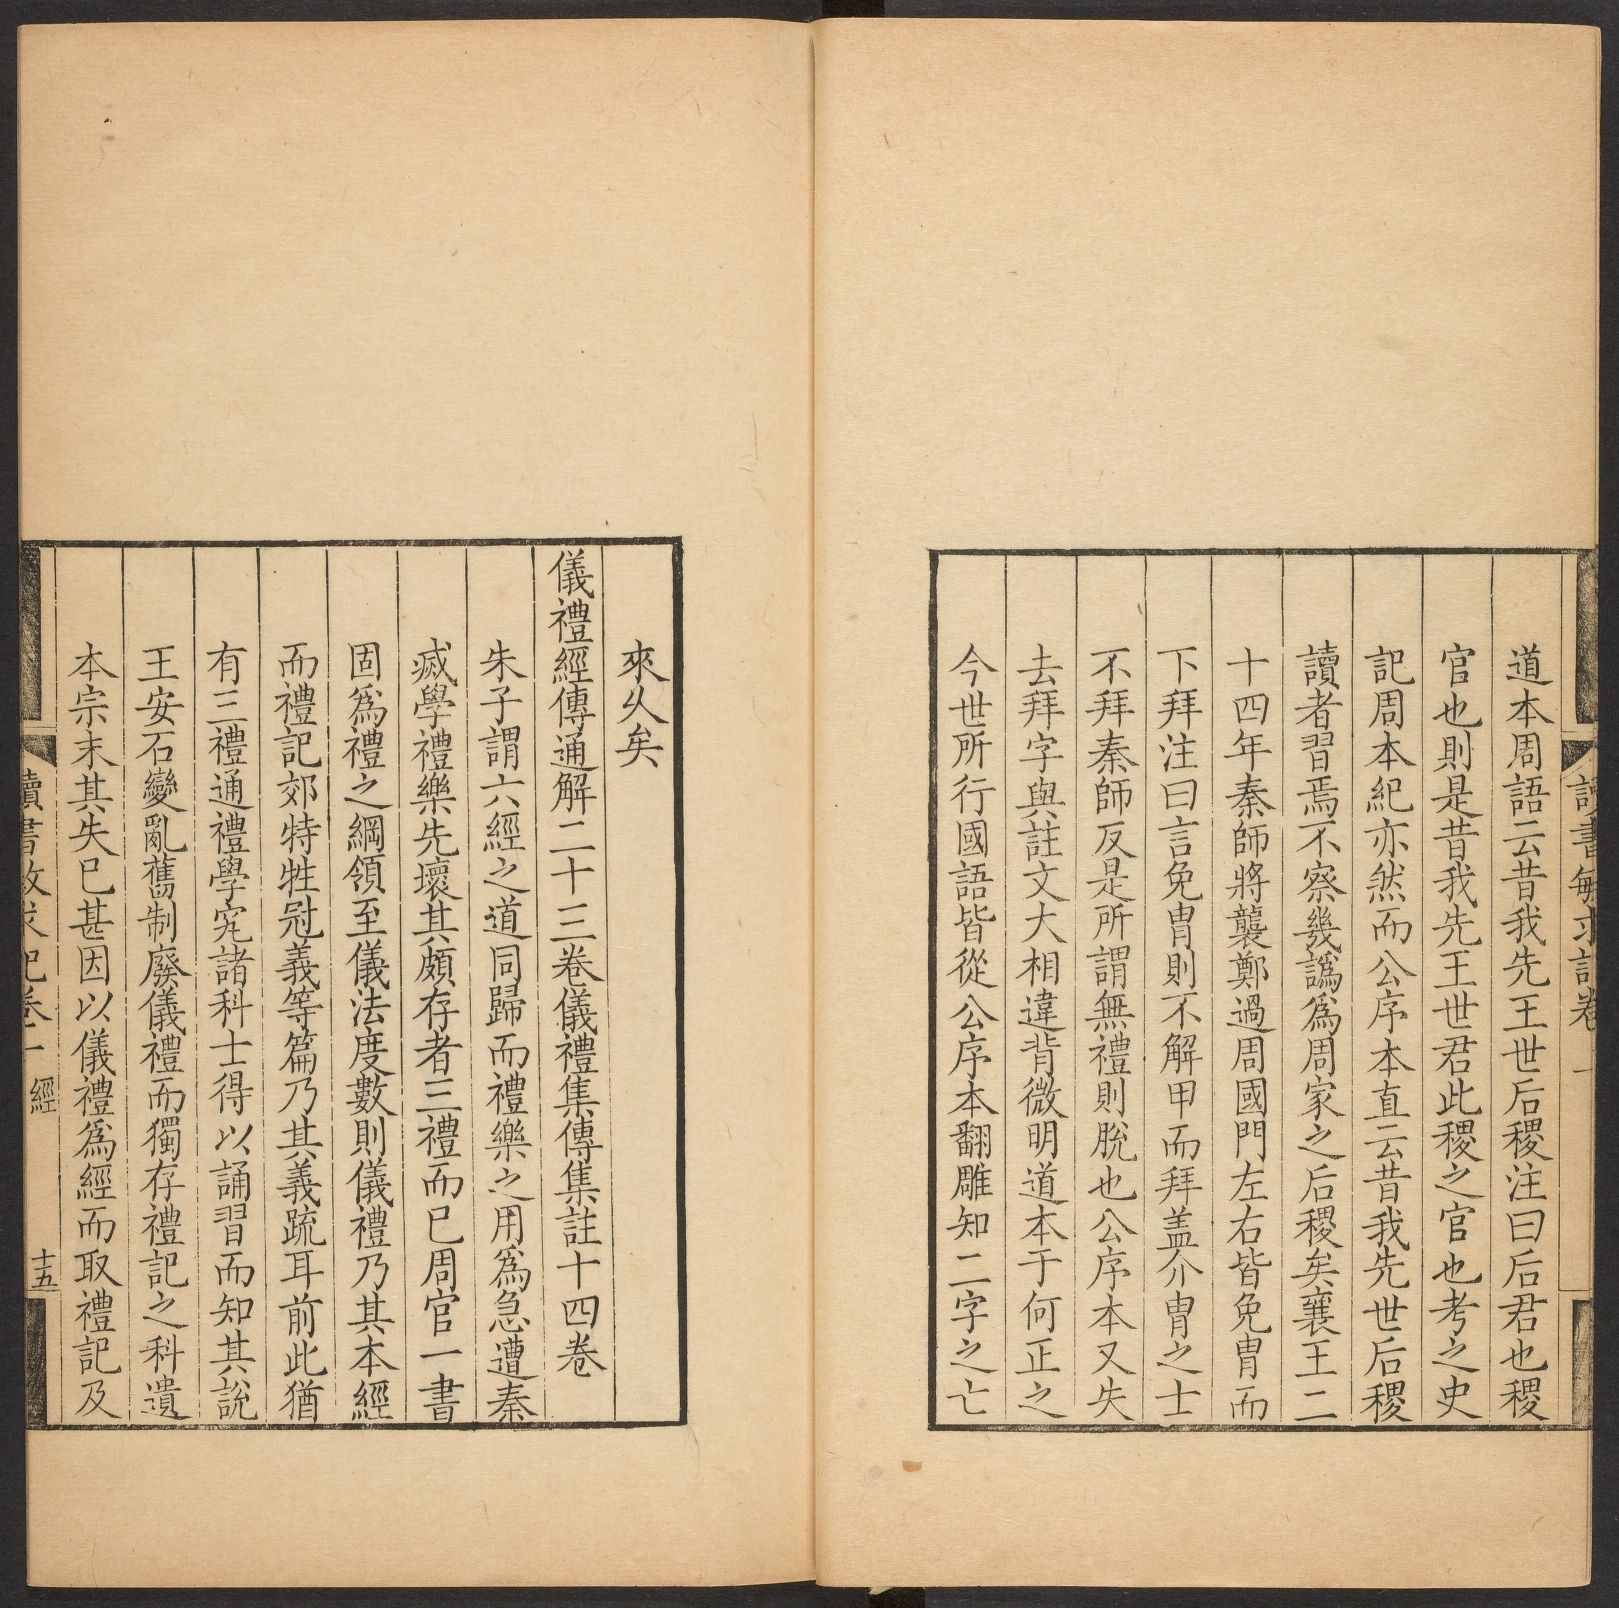 讀書敏求記卷一
道本周語云昔我先王世后稷注曰后君也稷
官也則是昔我先王世君此稷之官也考之史
記周本紀亦然而公序本直云昔我先世后稷
讀者習焉不察幾譌爲周家之后稷矣襄王二
十四年秦師將襲鄭過周國門左右皆免冑而
下拜注曰言免冑則不解甲而拜盖介冑之士
不拜秦師反是所謂無禮則脫也公序本又失
去拜字與註文大相違背微明道本于何正之
今世所行國語皆從公序本翻雕知二字之亡
來久矣
儀禮經傳通解二十三卷儀禮集傳集註十四卷
朱子謂六經之道同歸而禮樂之用爲急遭秦
滅學禮樂先壞其頗存者三禮而已周官一書
固爲禮之綱領至儀法度數則儀禮乃其本經
而禮記郊特牲冠義等篇乃其義疏耳前此猶
有三禮通禮學究諸科士得以誦習而知其說
王安石變亂舊制廢儀禮而獨存禮記之科遺
本宗末其失已甚因以儀禮爲經而取禮記及
讀書敏求記卷一 經 十五